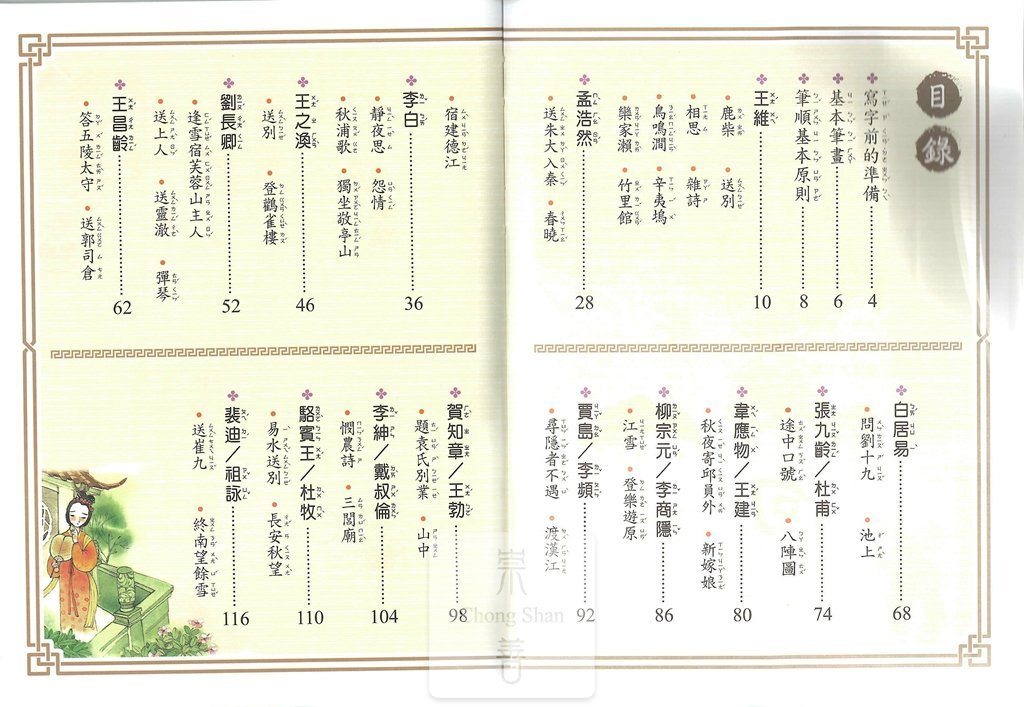 目錄
寫字前的準備 4
基本筆畫 6
筆順基本原則 8
王維 10
鹿柴 送別
相思 雜詩
鳥鳴澗 辛夷塢
欒家瀨 竹里館
孟浩然 28
送朱大入秦 春曉
宿建德江
李白 36
靜夜思 怨情
秋浦歌 獨坐敬亭山
王之渙 46
送別 登鸛雀樓
劉長卿 52
逢雪宿芙蓉山主人
送上人 送靈澈 彈琴
王昌齡 62
答五陵太守 送郭司倉
白居易 68
問劉十九 池上
張九齡/杜甫 74
途中口號 八陣圖
韋應物/王建 80
秋夜寄邱員外 新嫁娘
柳宗元/李商隱 86
江雪 登樂遊原
賈島/李頻 92
尋隱者不遇 渡漢江
賀知章/王勃 98
題袁氏別業 山中
李紳/戴叔倫 104
憫農詩 三閭廟
駱賓王/杜牧 110
易水送別 長安秋望
裴迪/祖詠 116
送崔九 終南望餘雪
崇善
Chong Shan